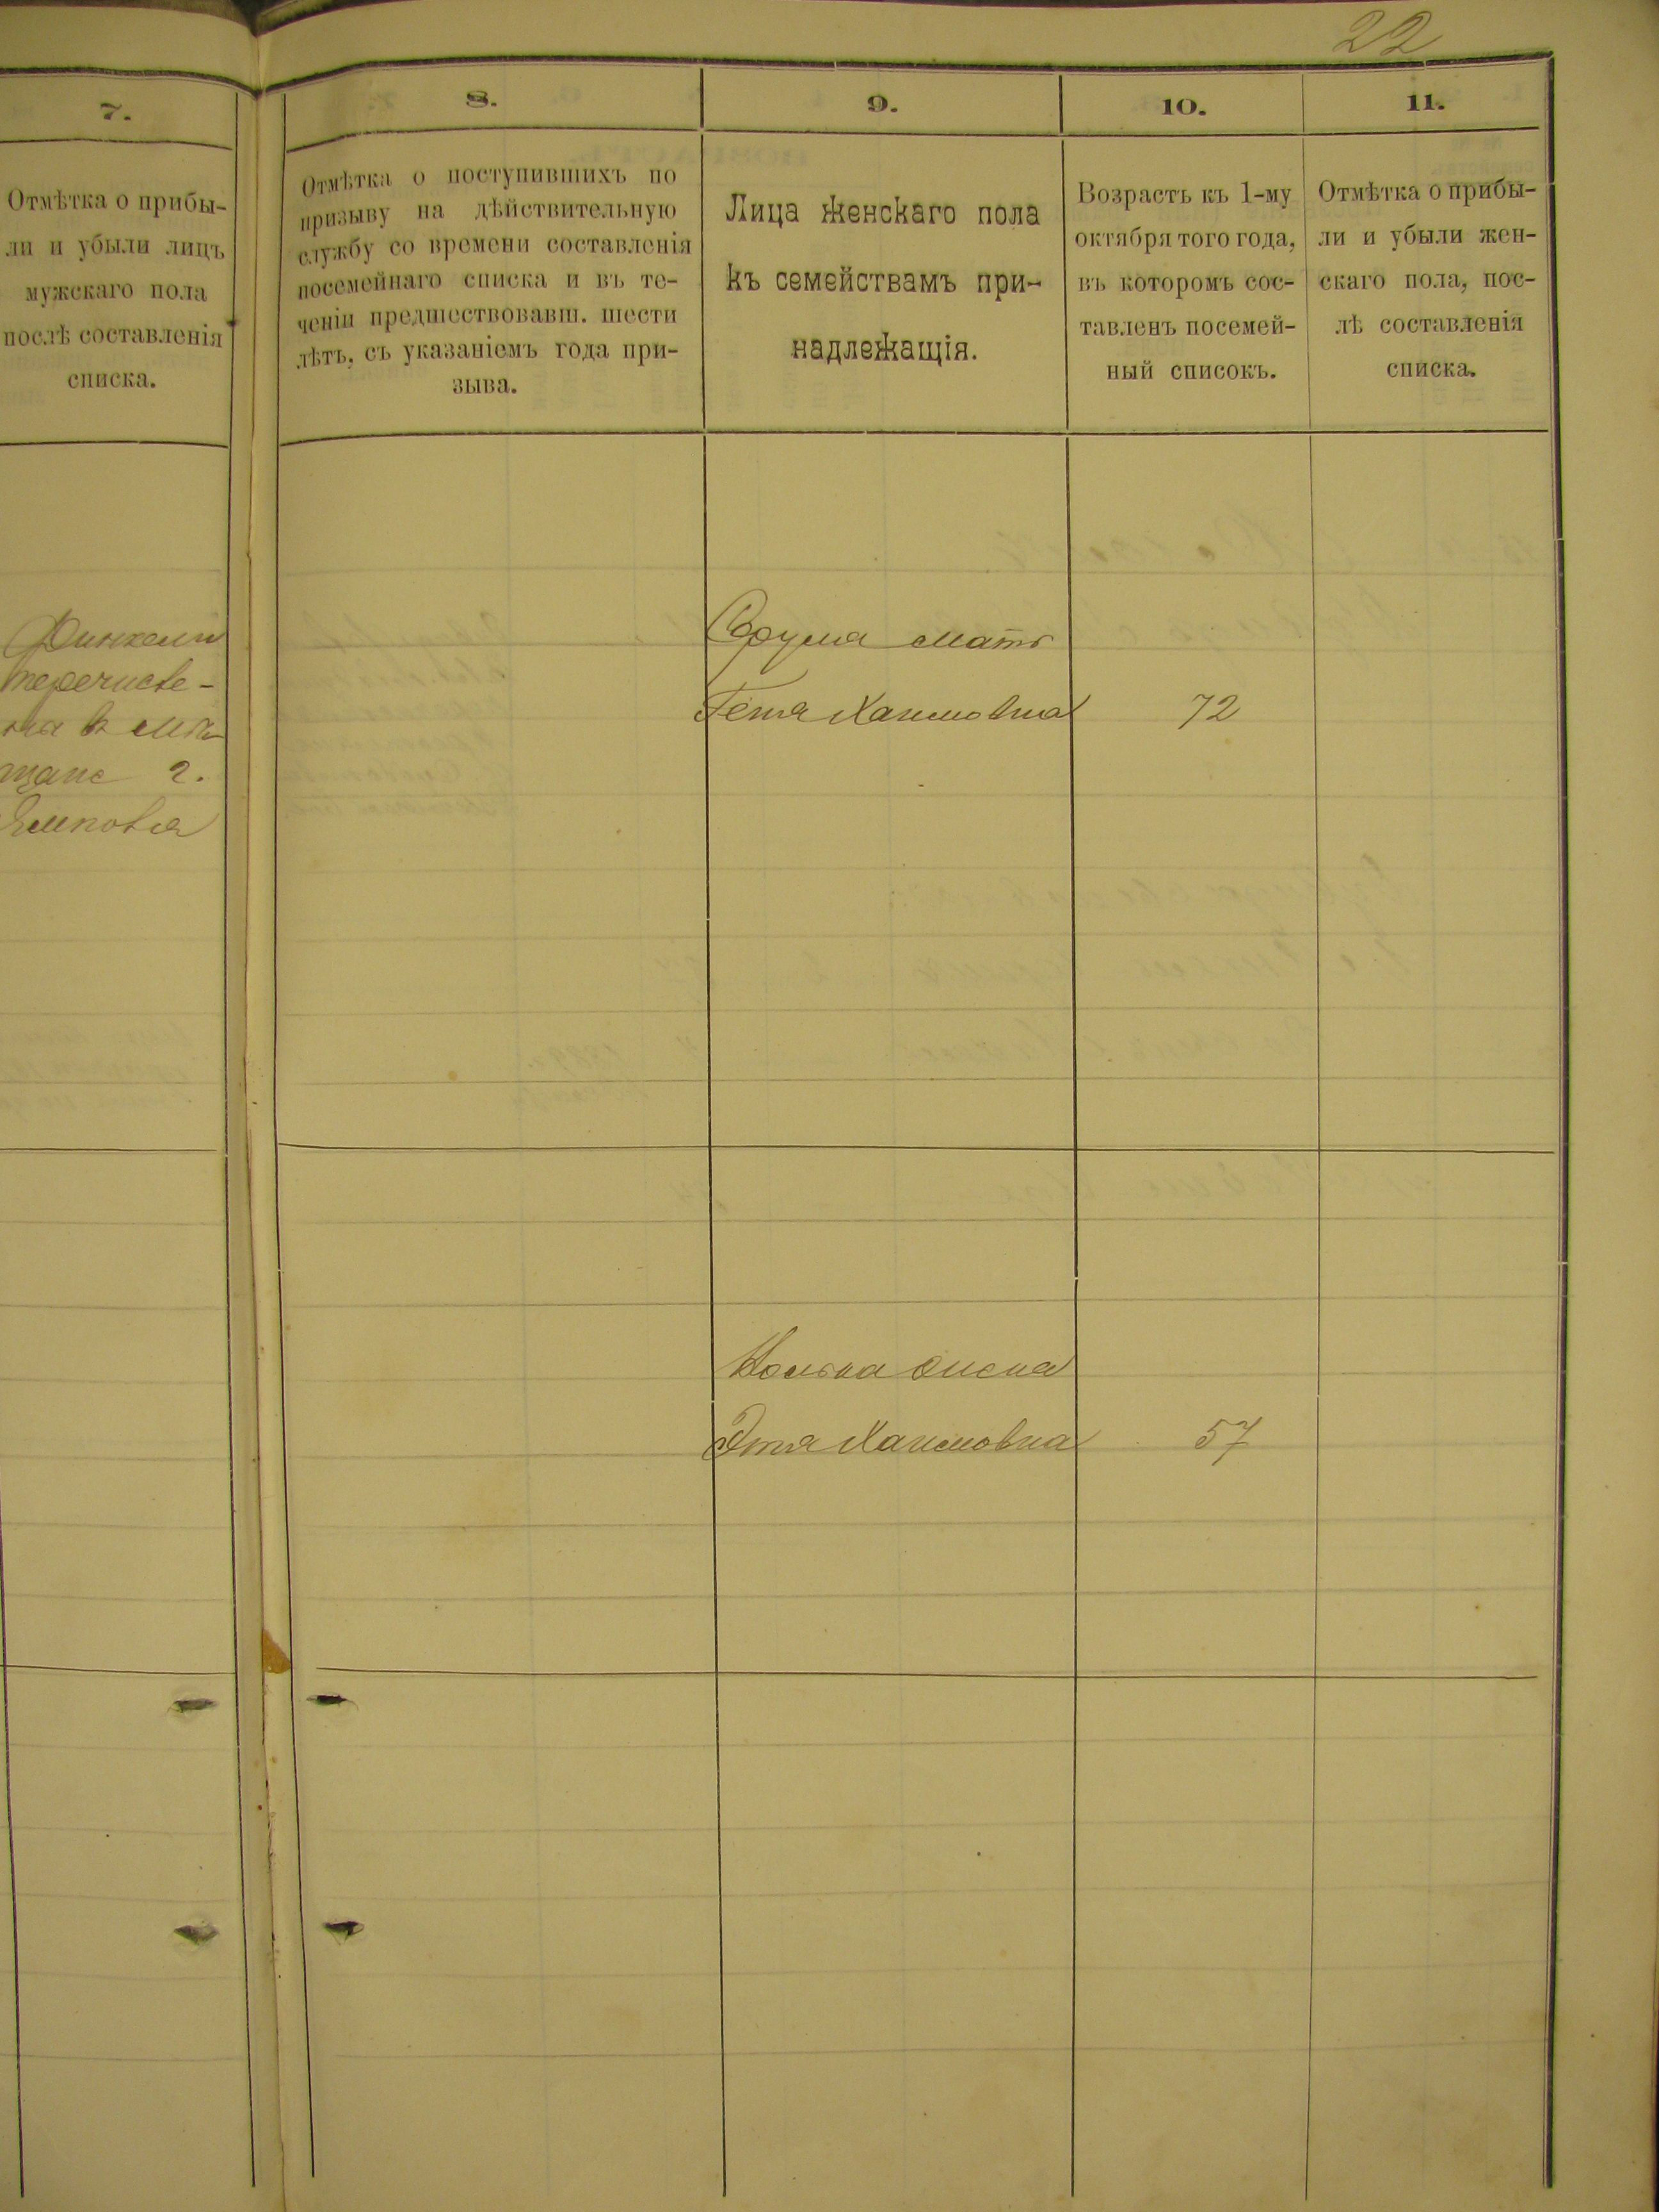 22
7.
Отмѣтка о прибы-
ли и убыли лицъ
мужскаго пола
послѣ составленія
списка.
8.
Отмѣтка о поступившихъ по
призыву на дѣйствительную
службу со времени составленія
посемейнаго списка и въ те-
ченіи предшествовавш. шести
лѣтъ, съ указаніемъ года при-
зыва.
9.
Лица женскаго пола
къ семействамъ при-
надлежащія.
10.
Возрастъ къ 1-му
октября того года,
въ которомъ сос-
тавленъ посемей-
ный списокъ.
11.
Отмѣтка о прибы-
ли и убыли жен-
скаго пола, пос-
лѣ составленія
списка.
перечисле-
г.
мать
Хаимовна 72
жена
Этя Хаимовна 57